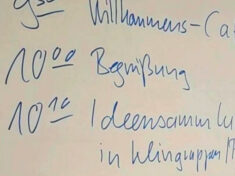 9³⁰ Willkommens-Ca
10⁰⁰ Begrüßung
10¹⁰ Ideensammlu
in Kleingruppen